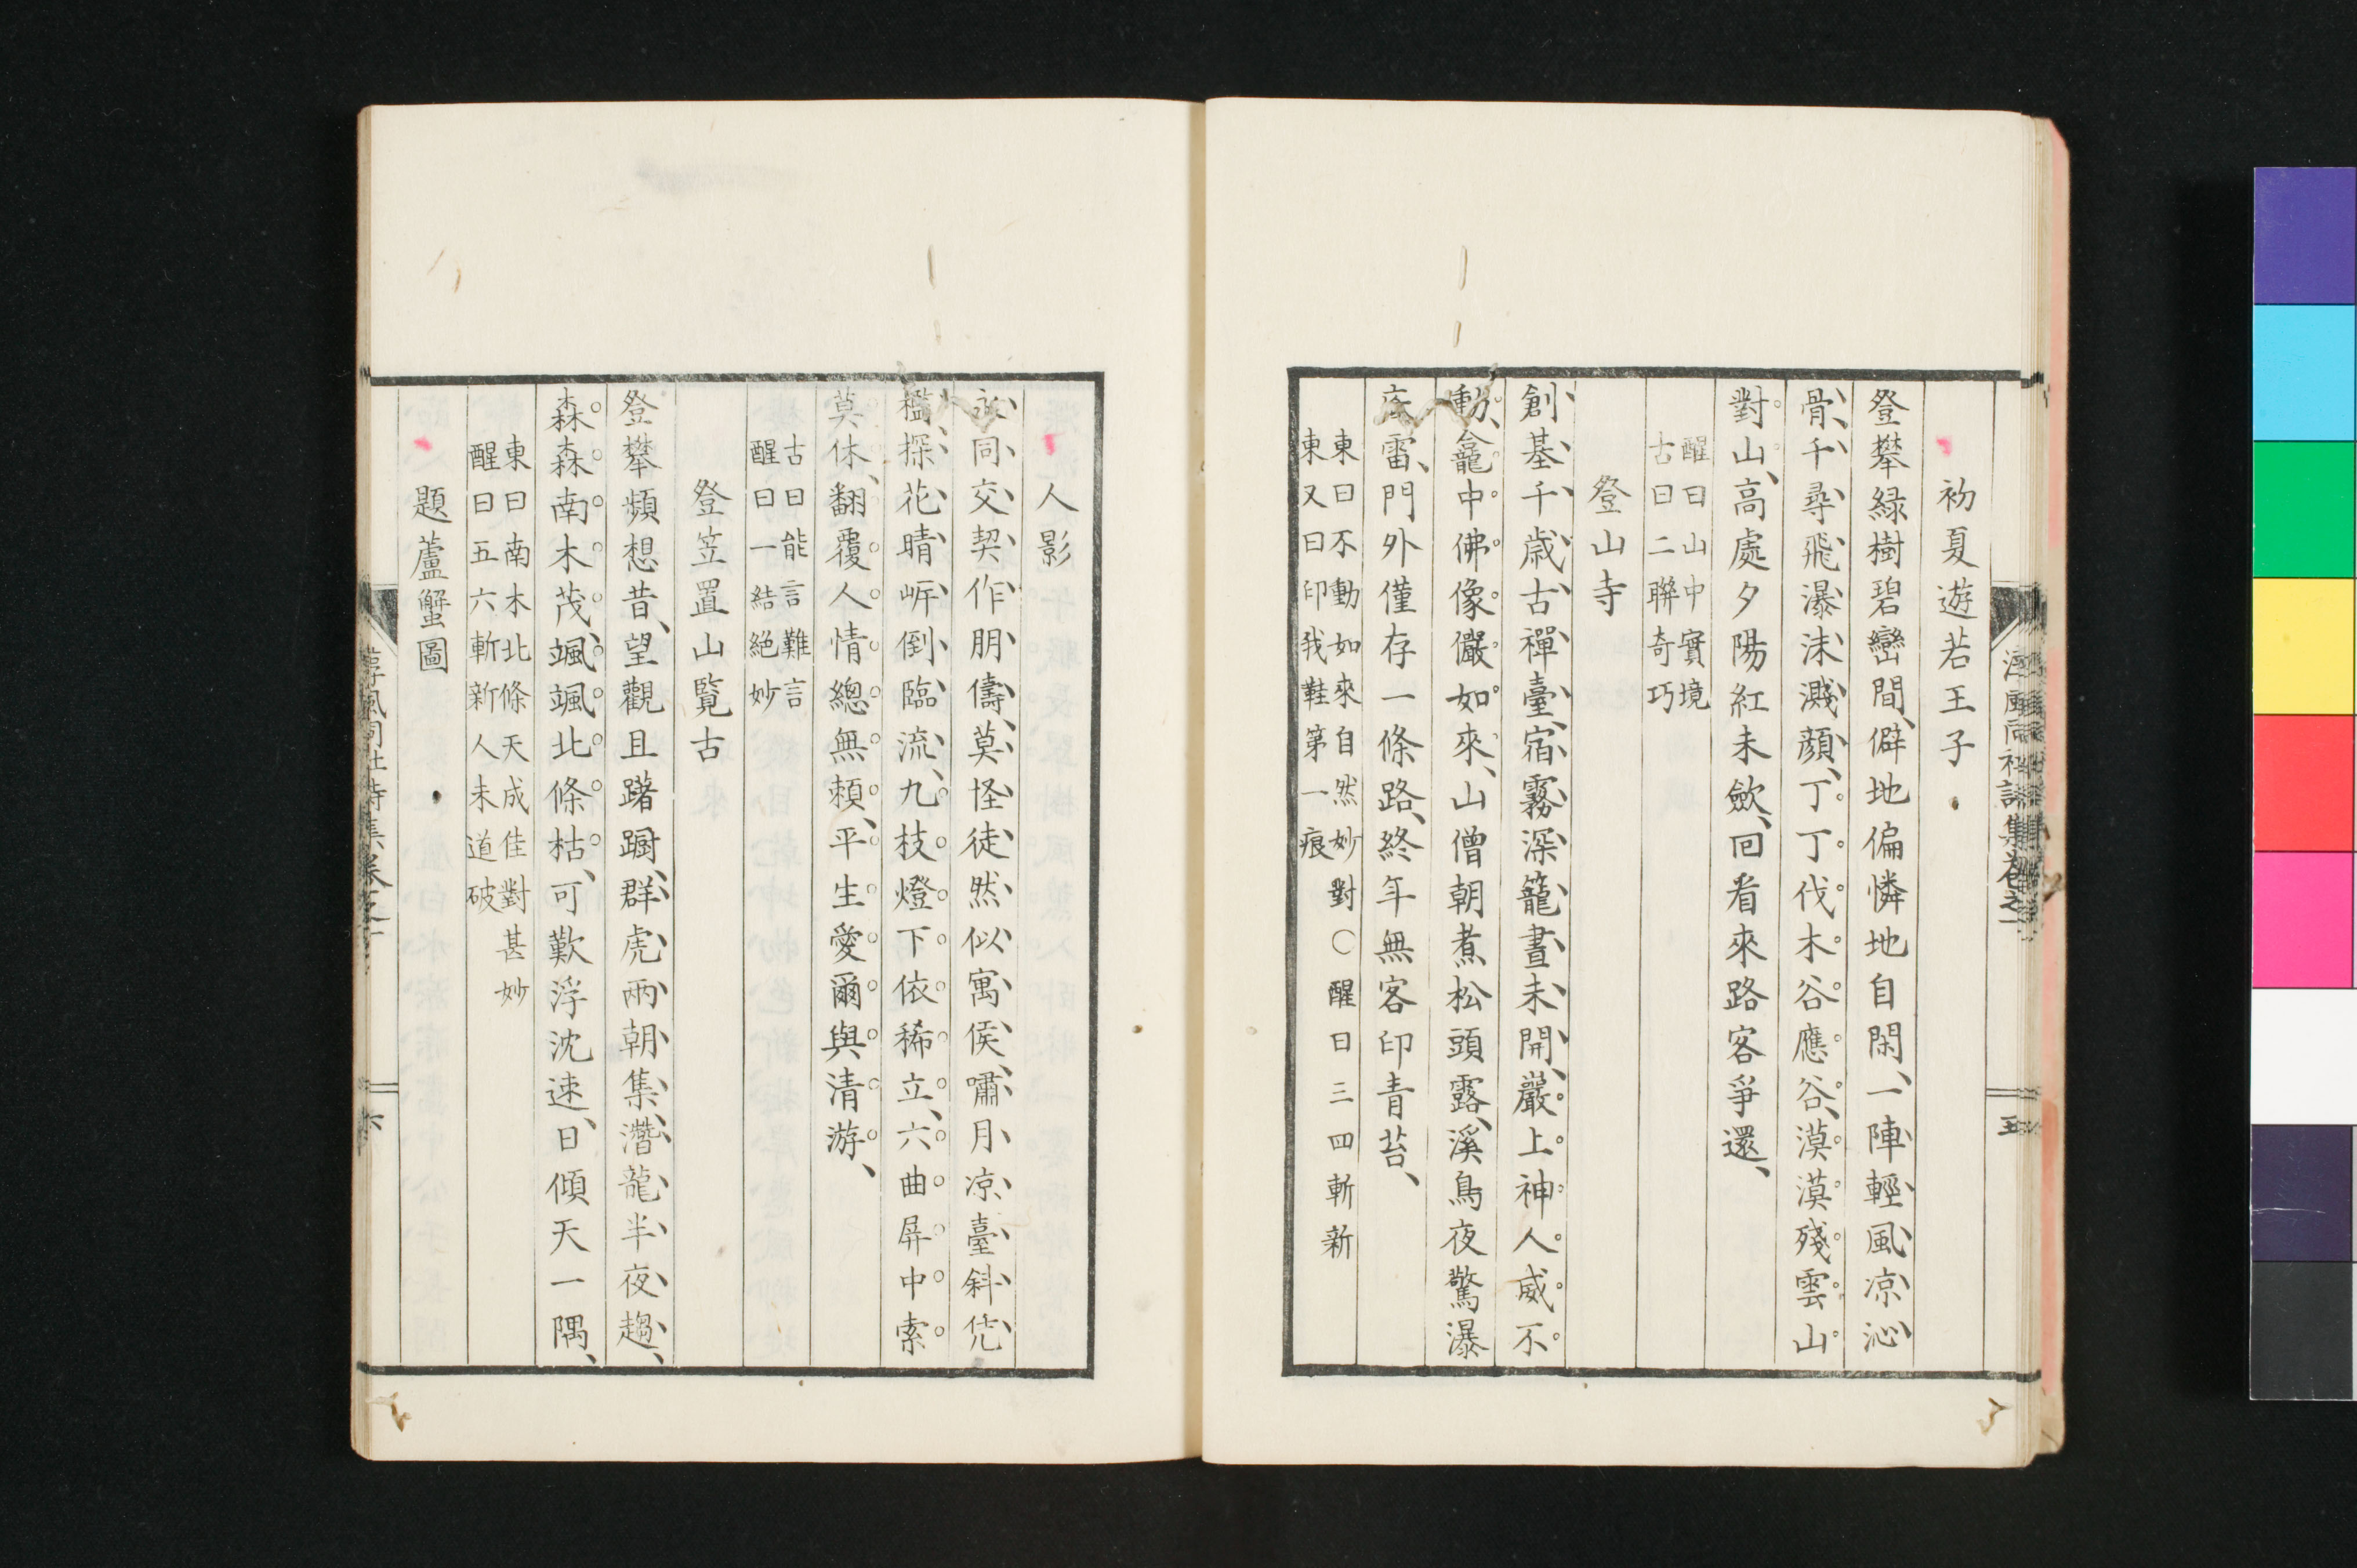 初夏遊若王子
登攀緑樹碧巒間、僻地偏憐地自閑、一陣輕風凉沁
骨、千尋飛瀑沫濺顔、丁丁伐木谷應谷、漠漠殘雲山
對山、高處夕陽紅未斂、回看來路客爭還、
醒曰山中實境
古曰二聯奇巧
登山寺
創基千歲古禪臺、宿霧深籠晝未開、嚴上神人威不
動、龕中佛像儼如來、山僧朝煮松頭露、溪鳥夜驚瀑
底雷、門外僅存一條路、終年無客印青苔、
東曰不動如來自然妙對〇醒曰三四斬新
東又曰印我鞋第一痕
五
人影
永同交契作朋儔、莫怪徒然似寓侯、嘯月凉臺斜凭
檻、探花晴㟁倒臨流、九枝燈下依稀立、六曲屏中索
莫休、翻覆人情總無頼、平生愛爾與清游、
古曰能言難言
醒曰一結絕妙
登笠置山覽古
登攀頻想昔、望觀且躇蹰、群虎兩朝集、潛龍半夜趨、
森森南木茂、颯颯北條枯、可歎浮沈速、日傾天一隅、
東曰南木北條天成佳對甚妙
醒曰五六斬新人未道破
題蘆蟹圖
風同社詩集卷之一
六